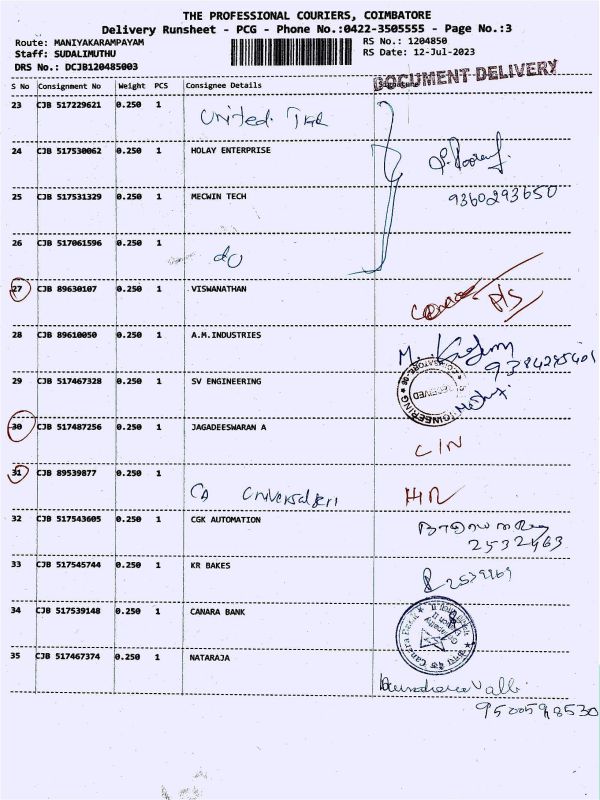 THE PROFESSIONAL COURIERS, COIMBATORE
Delivery Runsheet - PCG - Phone No.:0422-3505555 - Page No.:3
Route: MANIYAKARAMPAYAM RS No.: 1204850
Staff: SUDALIMUTHU RS Date: 12-Jul-2023
DRS No.: DCJB120485003
DOCUMENT DELIVERY
S No Consignment No Weight PCS Consignee Details Signature
23 CJB 517229621 0.250 1
United
24 CJB 517530062 0.250 1 HOLAY ENTERPRISE
25 CJB 517531329 0.250 1 MECWIN TECH 9360293650
26 CJB 517061596 0.250 1
do
27 CJB 89630107 0.250 1 VISWANATHAN
28 CJB 89610050 0.250 1 A.M.INDUSTRIES
9384285401
29 CJB 517467328 0.250 1 SV ENGINEERING
RECEIVED
30 CJB 517487256 0.250 1 JAGADEESWARAN A
C/N
31 CJB 89539877 0.250 1
32 CJB 517543605 0.250 1 CGK AUTOMATION
2532463
33 CJB 517545744 0.250 1 KR BAKES
34 CJB 517539148 0.250 1 CANARA BANK
Canara Bank
35 CJB 517467374 0.250 1 NATARAJA
9500598530